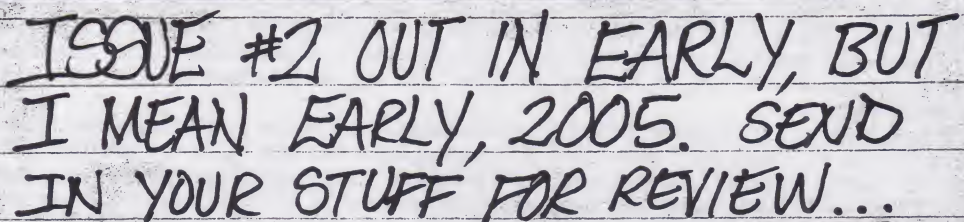 ISSUE #2 OUT IN EARLY, BUT
I MEAN EARLY, 2005. SEND
IN YOUR STUFF FOR REVIEW...